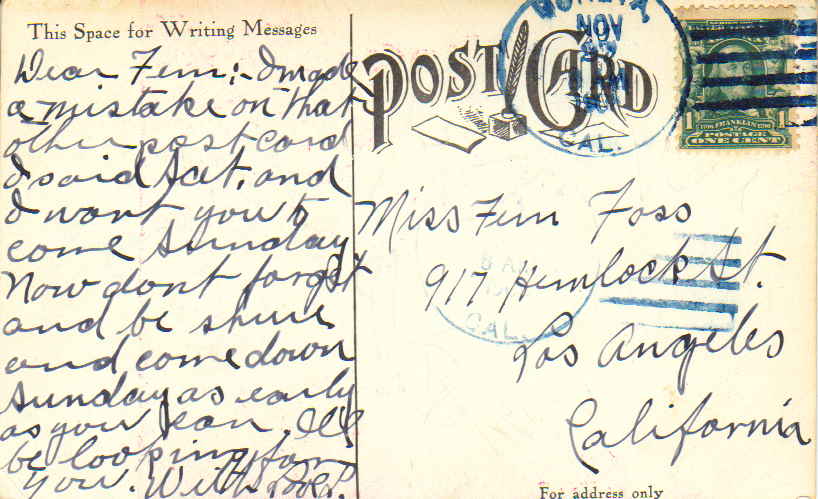 This Space for Writing Messages
Dear Fern:- I made
a mistake on that
other post card
I said Sat. and
I want you to
come Sunday
Now dont forget
and be shure
and come down
Sunday as early
as you can. I'll
be looking for
you. With love.
POST CARD
NOV
CAL.
1 FRANKLIN
POSTAGE
ONE CENT
Miss Fern Foss
917 Hemlock St.
Los Angeles
California
8 AM
CAL.
For address only